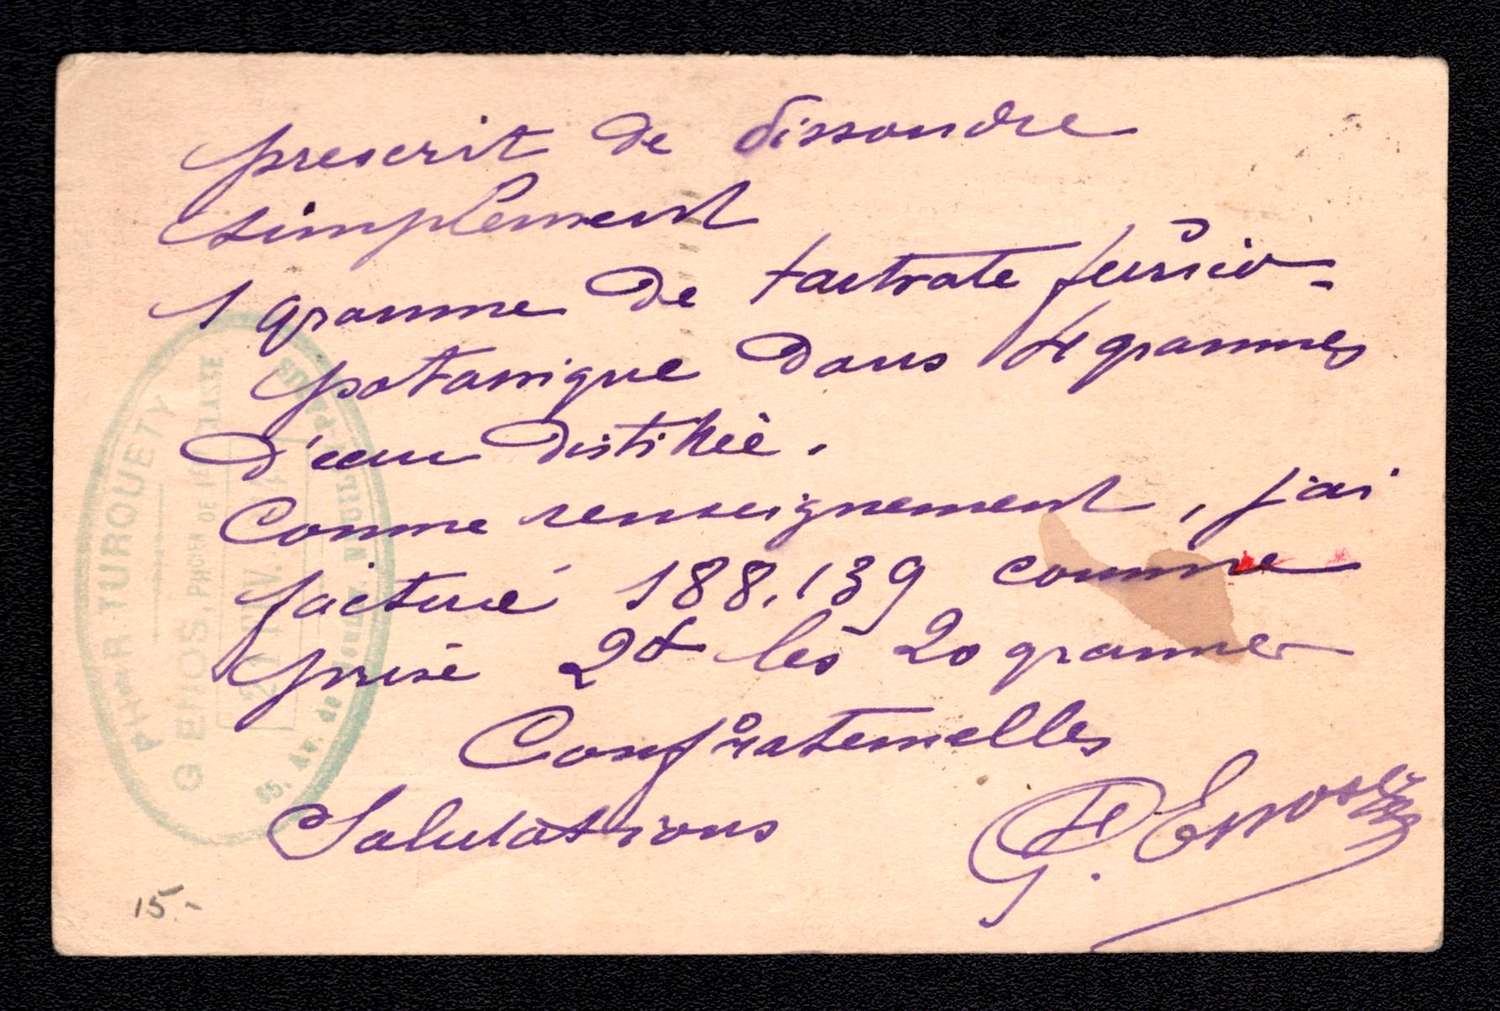 prescrit de dissoudre
simplement
1 gramme de tartrate ferrico-
potassique dans 4 grammes
d'eau distillée.
Comme renseignement, j'ai
facturé 188.139 comme
prise 2f les 20 grammes
Confraternelles
Salutations
G.
PHie R. TURQUETY
G ENOS, PHCIEN DE 1ERE CLASSE
21 FEV.
35, Av. de
15.-